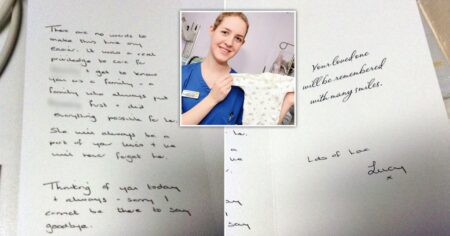 There are no words to
make this time any
easier. It was a real
privilege to care for
& get to know
you as a family - a
family who always put
first & did
everything possible for her.
She will always be a
part of your lives & we
will never forget her.
Thinking of you today
& always - sorry I
cannot be there to say
goodbye.
Your loved one
will be remembered
with many smiles.
Lots of Love
Lucy
x